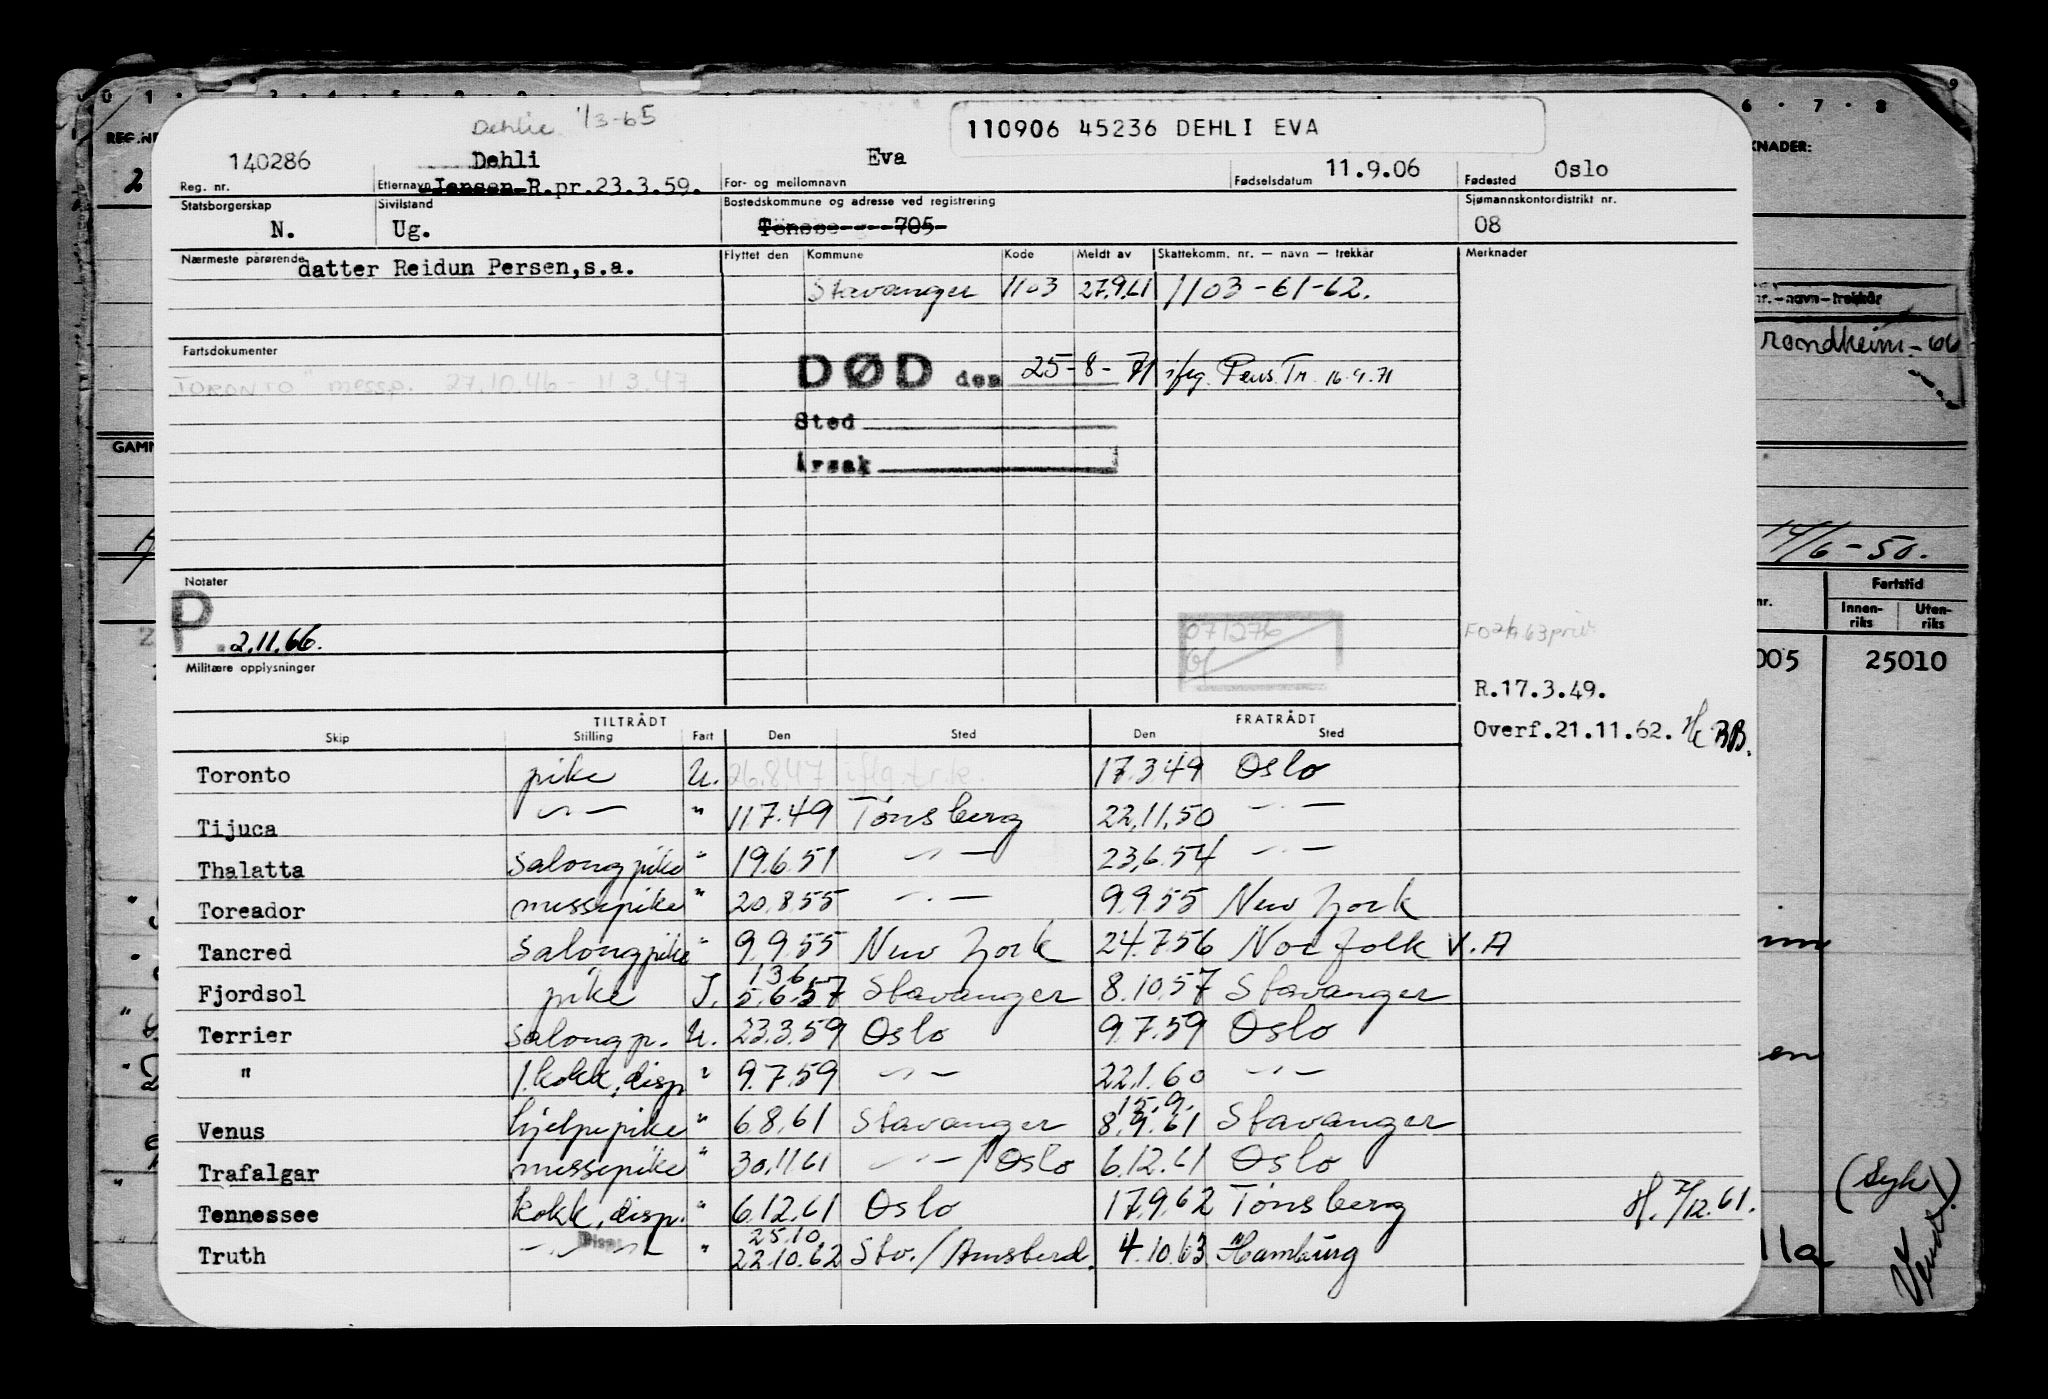 Dehlie 1/3-65
110906 45236 DEHLI EVA
140286 Dehli Eva 11.9.06 Oslo
Reg. nr. Etternavn Jensen R.pr.23.3.59. For- og mellomnavn Fødselsdatum Fødested
Statsborgerskap Sivilstand Bostedskommune og adresse ved registrering Sjømannskontordistrikt nr.
N. Ug. 705 08
Nærmeste pårørende datter Reidun Persen,s.a. Flyttet den Kommune Kode Meldt av Skattekomm. nr. — navn — trekkår Merknader
Stavanger 1103 27.9.61 1103-61-62.
Fartsdokumenter
DØD den 25-8-71 ifɡ. Pens.Tr. 16.9.71
TORONTO" messp. 27.10.46 - 11.3.47
Sted
Årsak
Notater
P. 2.11.66.
07/276
Militære opplysninger
R.17.3.49.
Overf.21.11.62. BB.
TILTRÅDT FRATRÅDT
Skip Stilling Fart Den Sted Den Sted
Toronto pike U. 26.8.47 iflg. tr.k. 17.3.49 Oslo
Tijuca —"— " 11.7.49 Tønsberg 22.11.50 —"—
Thalatta salongpike " 19.6.51 —"— 23.6.54 —"—
Toreador messepike " 20.8.55 —"— 9.9.55 New York
Tancred salongpike " 9.9.55 New York 24.7.56 Norfolk V.A
13.6
Fjordsol pike I. 5.6.57 Stavanger 8.10.57 Stavanger
Terrier salongp. U. 23.3.59 Oslo 9.7.59 Oslo
" 1.kokk, disp " 9.7.59 —"— 22.1.60 —"—
15.9.
Venus hjelpepike " 6.8.61 Stavanger 8.9.61 Stavanger
Trafalgar messepike " 30.11.61 —"—/Oslo 6.12.61 Oslo
Tennessee kokk, disp. " 6.12.61 Oslo 17.9.62 Tønsberg H. 7/12.61.
Disp. 25.10.
Truth —"— " 22.10.62 Stv./Amsterd. 4.10.63 Hamburg
REG.NR
2
0 1 3 4 5
6 · 7 · 8 9
KNADER:
nr.—navn—trekkår
rondheim-66
14/6-50.
Fartstid
nr. Innen-riks Uten-riks
005 25010
en
(Syk)
lla